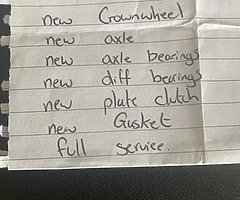 new Crownwheel
new axle
new axle bearings
new diff bearings
new plate clutch
new Gusket
full service.